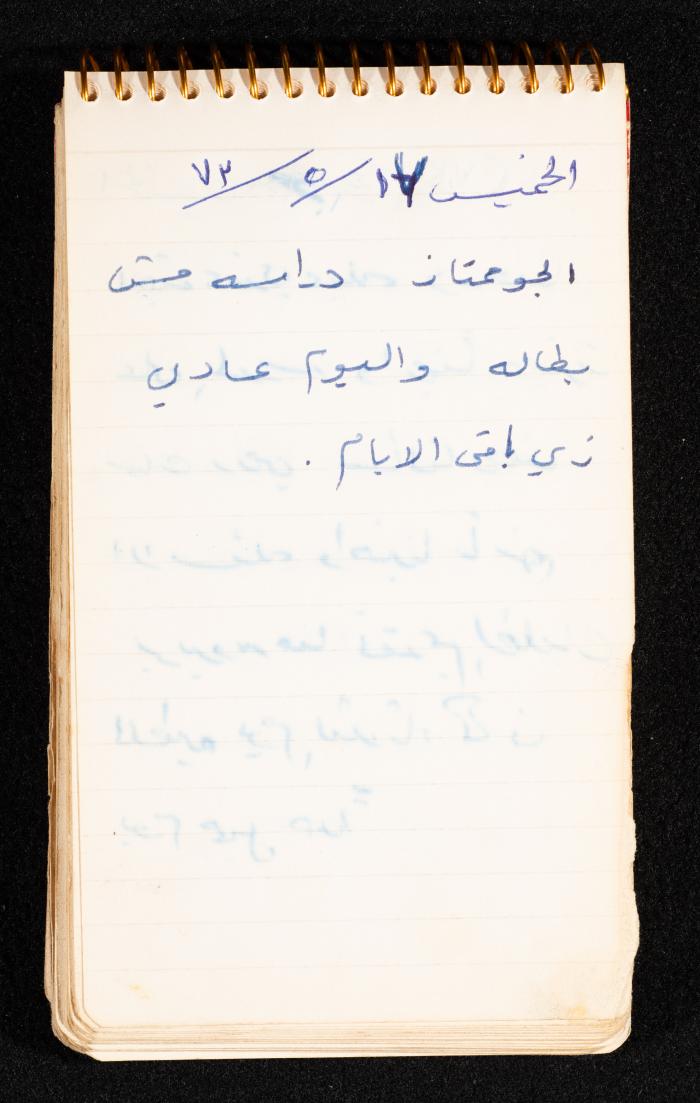 الخميس ١٧/ ٥/ ٧٣
الجو ممتاز دراسه مش
بطاله واليوم عادي
زي باقى الايام .